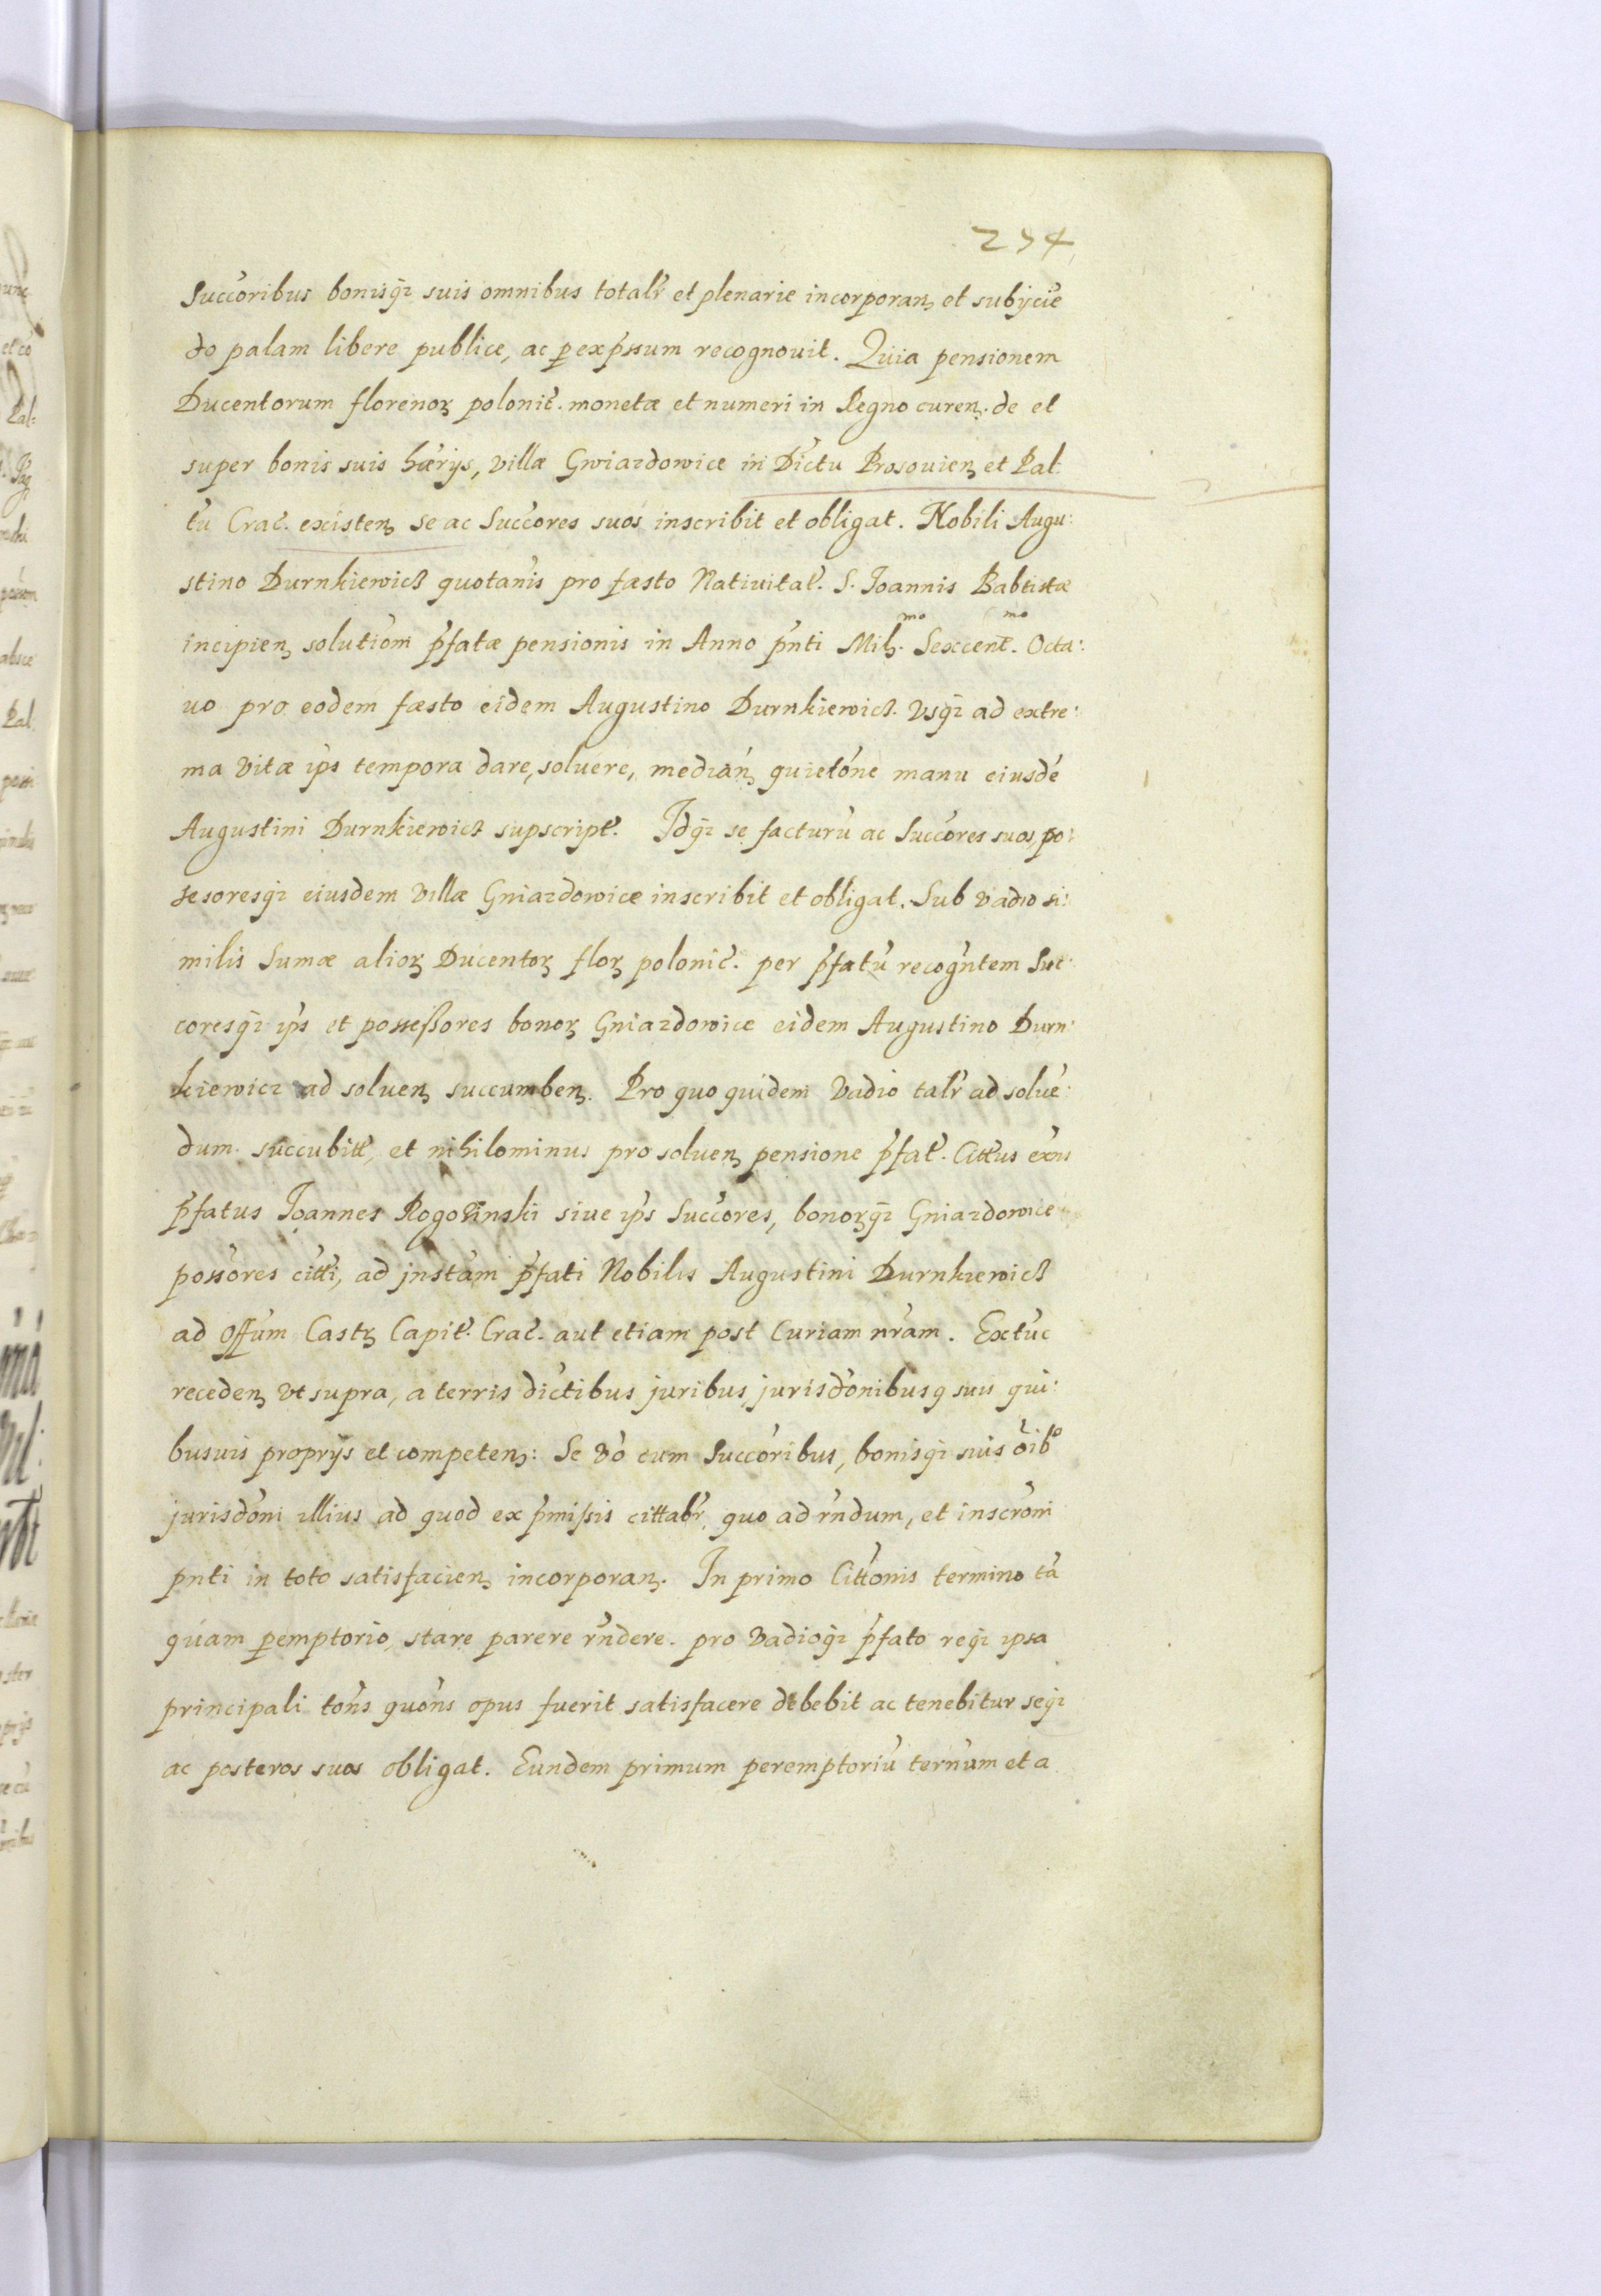 234
Succoribus bonisq3 suis omnibus totalr et plenarie incorporanȝ et subijcie
do palam libere publice, ac p expssum recognouit. Quia pensionem
Ducentorum florenorȝ polonic. monetæ et numeri in Regno curenȝ. de et
super bonis suis hærijs, villæ Gwiazdowice in Dictu Prosouienȝ et Pal:
tu Crac. existenȝ se ac Succores suos inscribit et obligat. Nobili Augu:
stino Durnkiewicz quotanis pro fæsto Natiuitat. S. Joannis Babtistæ
incipienȝ solutiom pfatæ pensionis in Anno pnti Mill.mo Sexcent.mo Octa:
uo pro eodem fæsto eidem Augustino Durnkiewicz. Vsq3 ad extre:
ma vitæ ips tempora dare, soluere, medianȝ quietone manu eiusde
Augustini Durnkiewicz supscript. Idq3 se facturu ac Succores suos po:
sesoresq3 eiusdem villæ Gniazdowice inscribit et obligat. Sub vadio si:
milis Sumæ aliorȝ Ducentorȝ florȝ polonic. per pfatu recogntem Suc:
coresq3 ips et possessores bonorȝ Gniazdowice eidem Augustino Durn:
kiewicz ad soluenȝ succumbenȝ. Pro quo quidem Vadio talr ad solue:
dum succubitt, et nihilominus pro soluenȝ pensione pfat. Cittus exns
pfatus Joannes Rogozinski siue ips Succores, bonorȝq3 Gniazdowice
possores citti, ad jnstam pfati Nobilis Augustini Durnkiewicz
ad Offum Castrȝ Capit. Crac. aut etiam post Curiam nram. Extuc
recedenȝ vt supra, a terris dictibus juribus, jurisdonibusq suis qui:
busuis proprijs et competenȝ: Se vo cum Succoribus, bonisq3 suis oib9
jurisdoni illius ad quod ex pmissis cittabr, quo ad rndum, et inscroni
pnti in toto satisfacienȝ incorporanȝ. In primo Cittonis termino ta
quam pemptorio, stare parere rndere. pro Vadioq3 pfato req3 ipsa
principali tons quons opus fuerit satisfacere debebit ac tenebitur seq3
ac posteros suos obligat. Eundem primum peremptoriu ternum et a